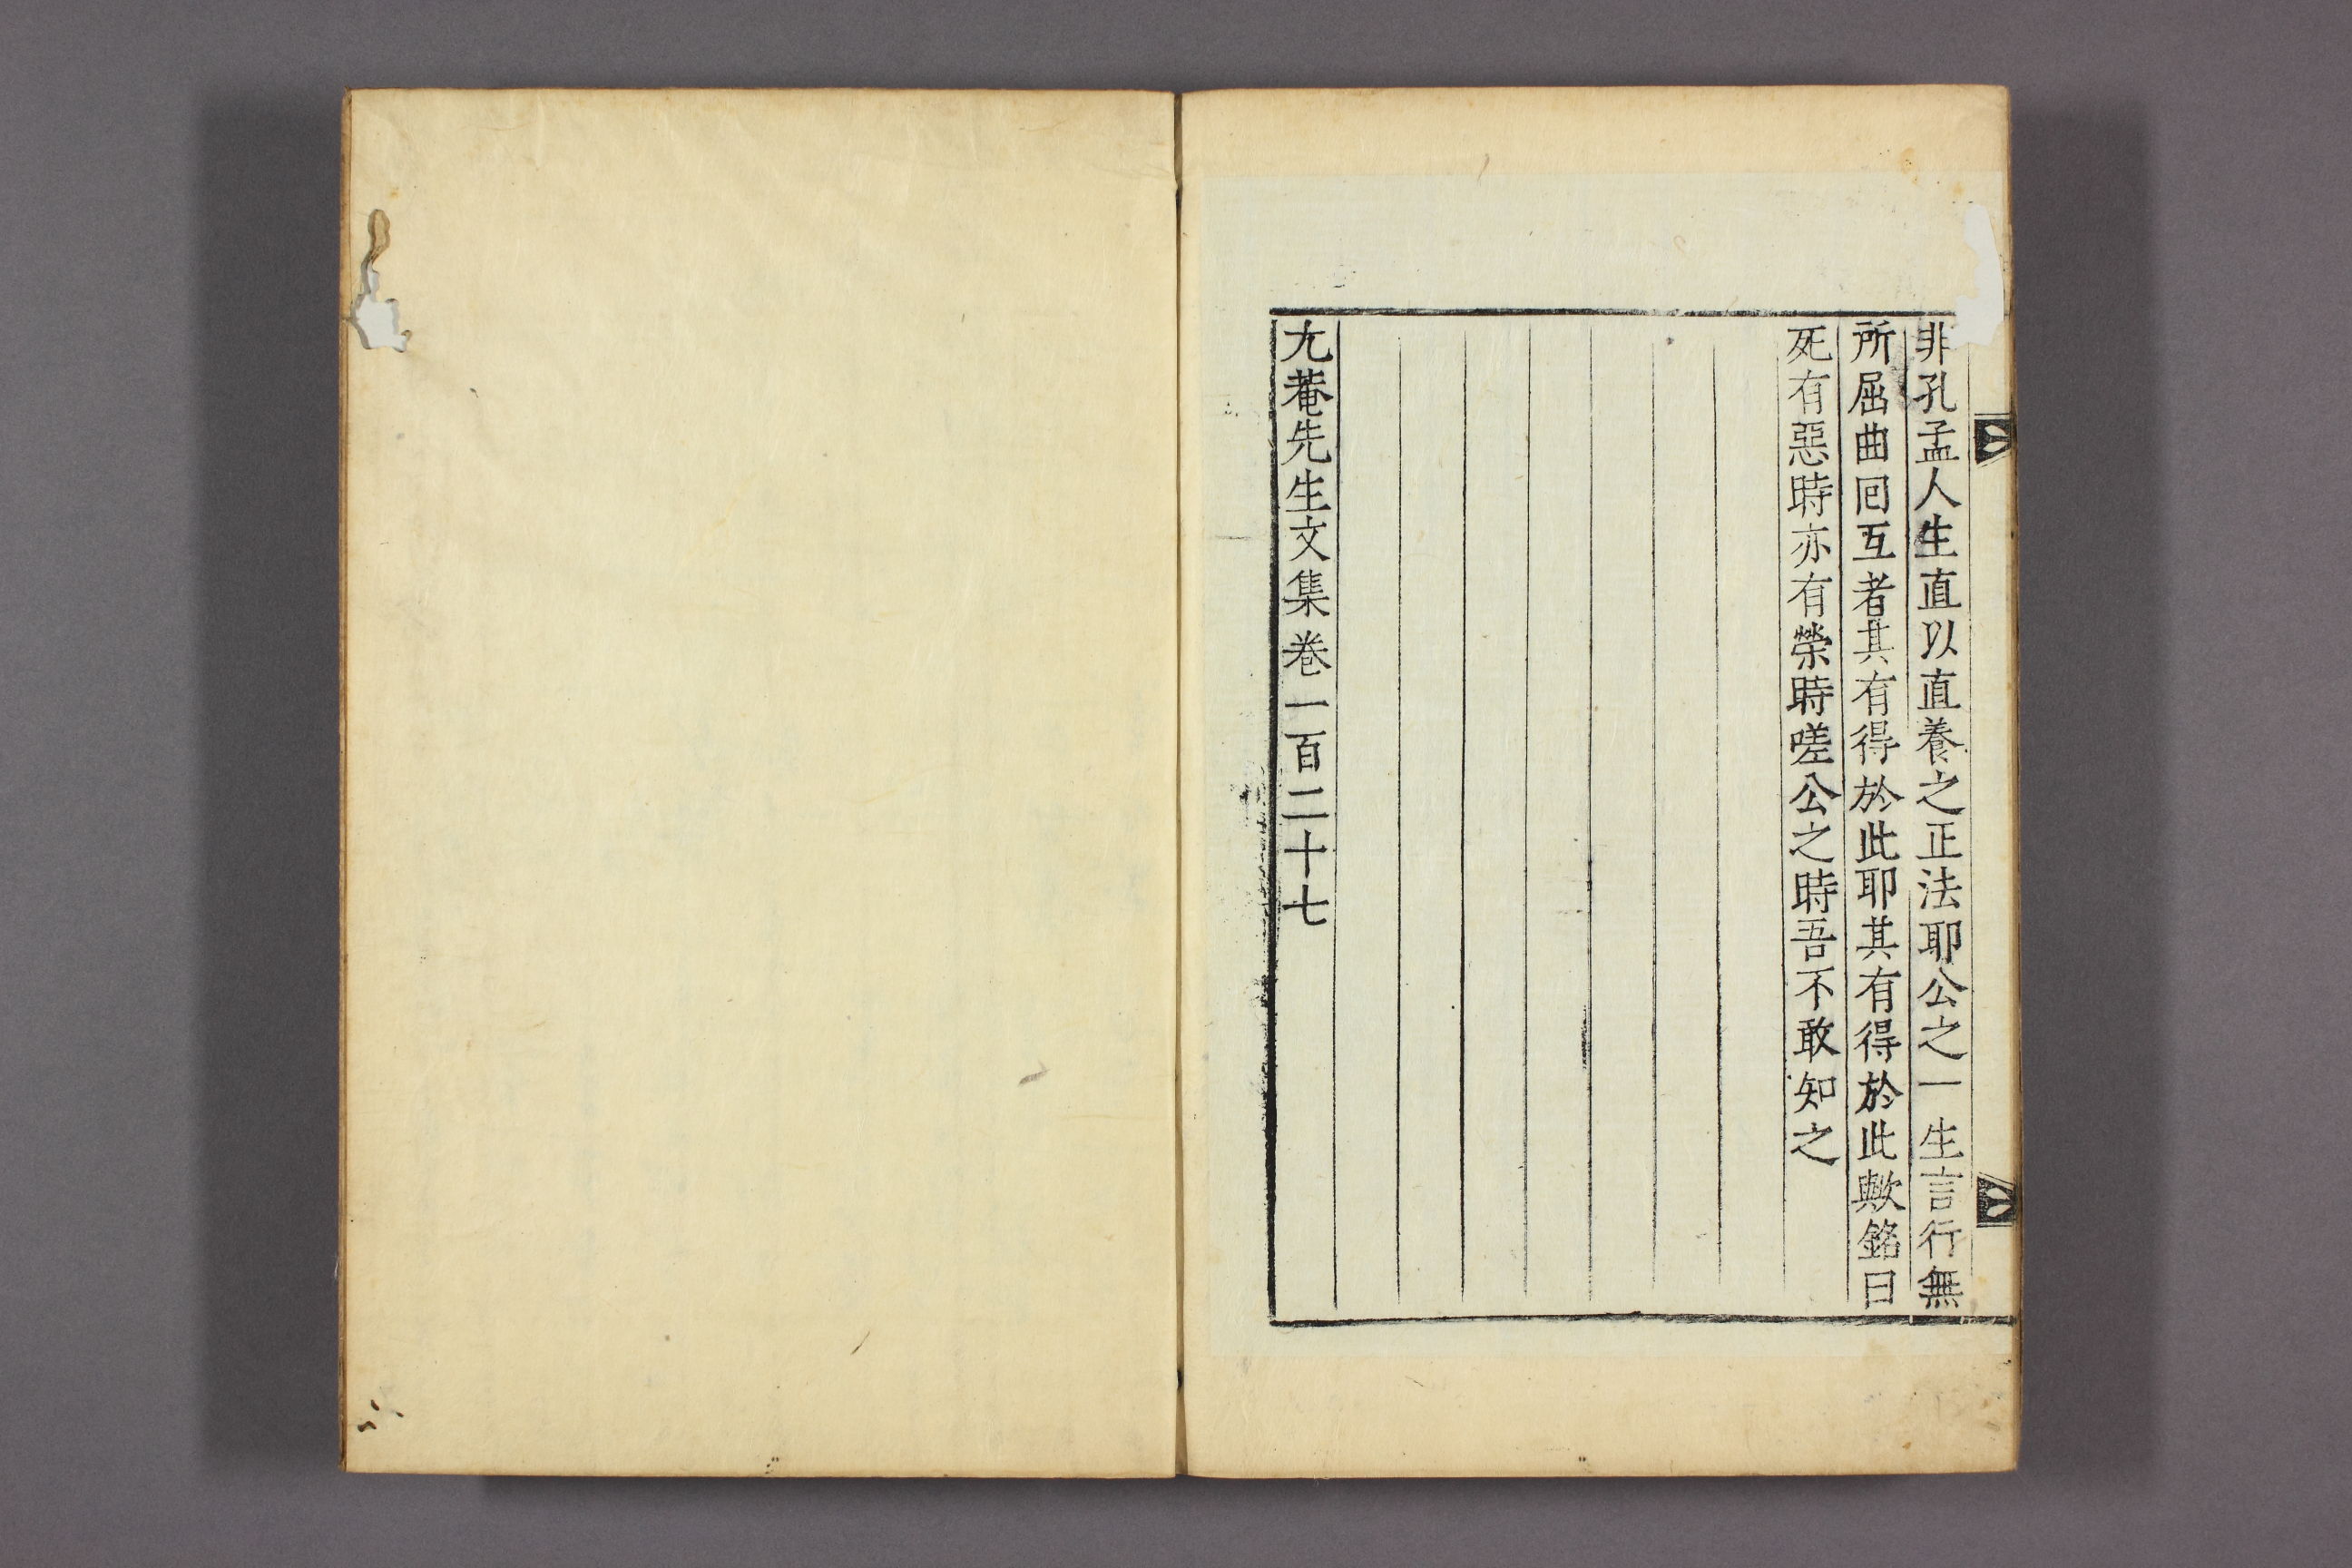 非孔孟人生直以直養之正法耶公之一生言行無
所屈曲囘互者其有得於此耶其有得於此歟銘曰
死有惡時亦有榮時嗟公之時吾不敢知之
尤菴先生文集卷一百二十七